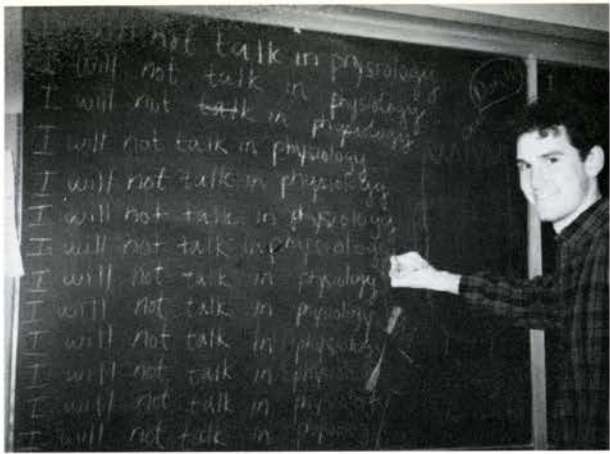 I will not talk in physiology
I will not talk in physiology
I will not talk in physiology
I will not talk in physiology
I will not talk in physiology
I will not talk in physiology
I will not talk in physiology
I will not talk in physiology
I will not talk in physiology
I will not talk in physiology
I will not talk in physiology
I will not talk in physiology
I will not talk in physiology
I